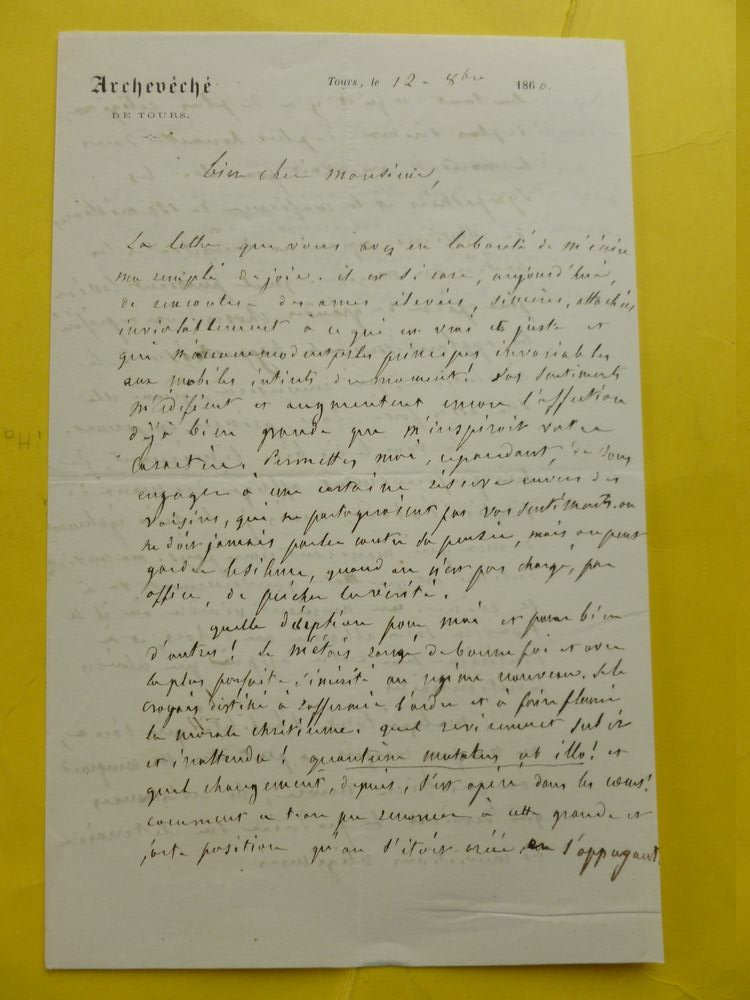 Archevêché
DE TOURS.
Tours, le 12 - 8bre 1860.
bien cher monsieur,
La lettre que vous avez eu la bonté de m'écrire
ma remplé de joie. il est si rare, aujourd'hui,
de rencontrer des ames élevées, sincères, attachées
inviolablement à ce qui est vrai et juste et
qui n'accommodent pas les principes invariables
aux mobiles intérêts du moment! vos sentiments
m'édifient et augmentent encore l'affection
déjà bien grande que m'inspiroit votre
caractère. Permettez moi, cependant, de vous
engager à une certaine réserve envers des
voisins, qui ne partageroient pas vos sentiments. on
ne doit jamais parler contre sa pensée, mais on peut
garder le silence, quand on n'est pas chargé, par
office, de prêcher la vérité.
quelle déception pour moi et pour bien
d'autres! Je m'étois rangé de bonne foi et avec
la plus parfaite sincérité au régime nouveau. Je le
croyais destiné à raffermir l'ordre et à faire fleurir
la morale chrétienne. quel revirement subit
et inattendu! quantum mutatus ab illo! et
quel changement, depuis, s'est opéré dans les cœurs!
comment a t'on pu renoncer à cette grande et
forte position qu'on s'étoit créée en s'appuyant